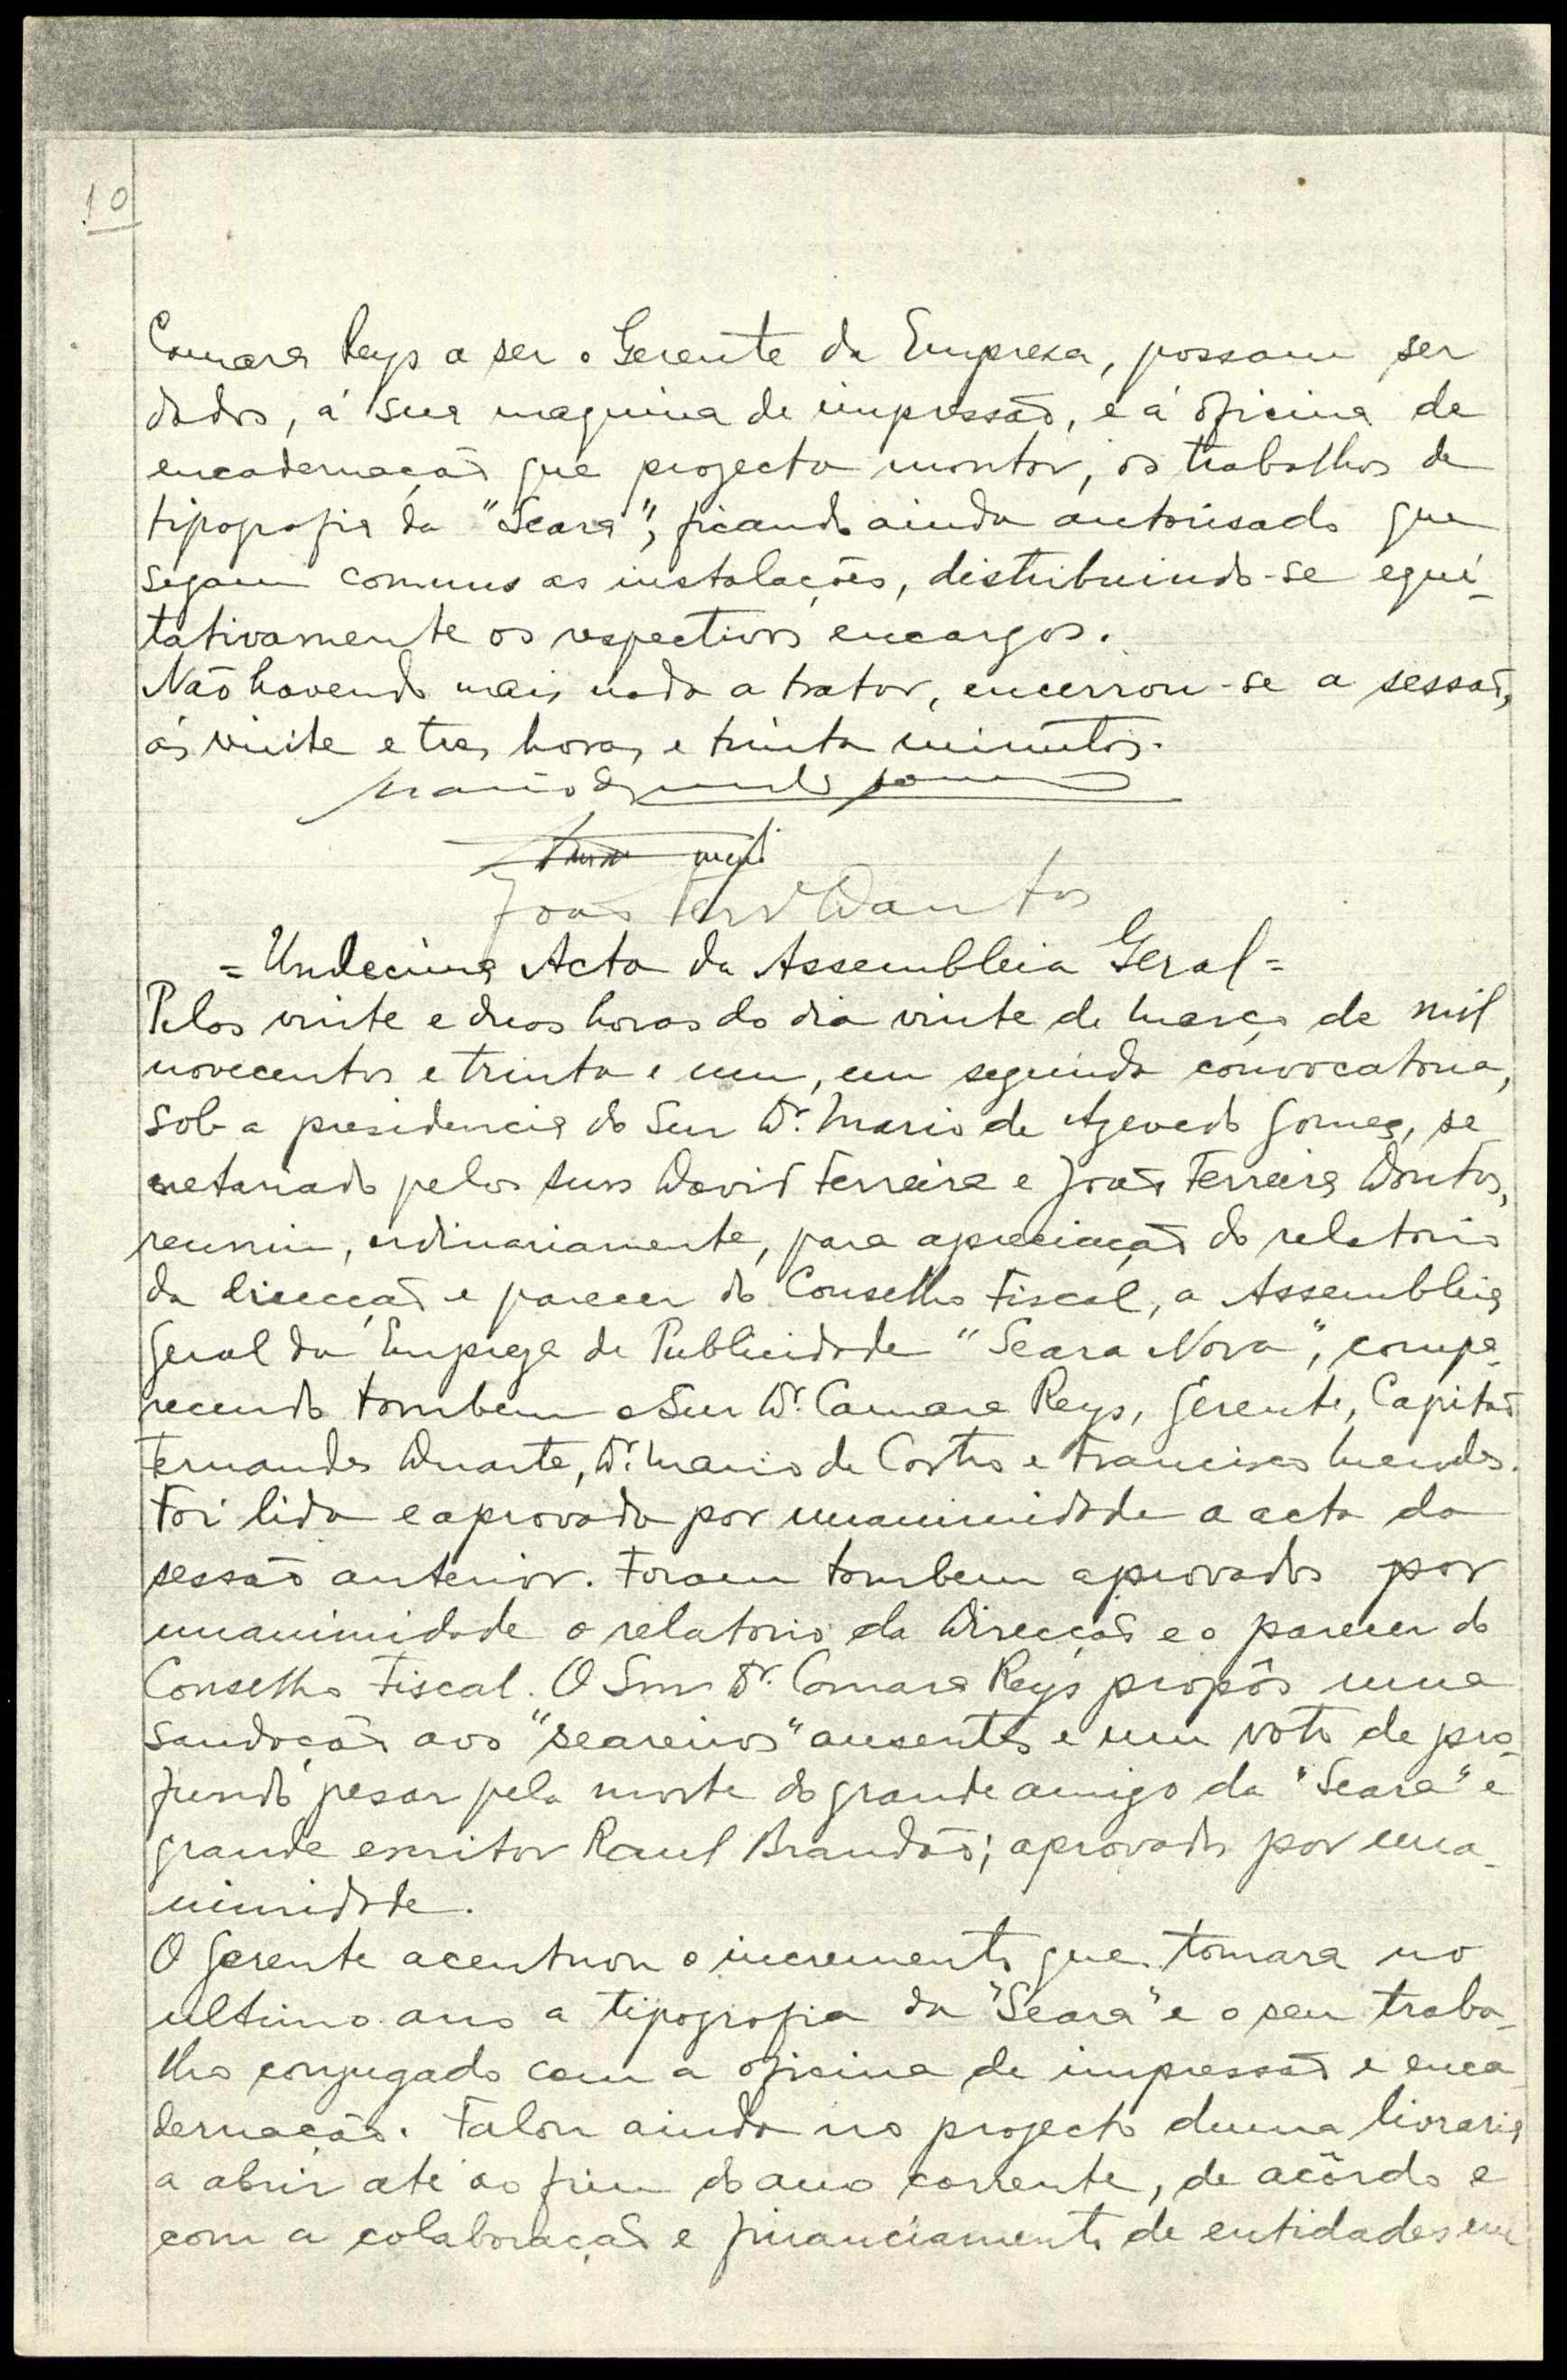 10
Camara Reys a ser o Gerente da Empresa, possam ser
dados, á sua maquina de impressão, e á oficina de
encadernação que projecta montar, os trabalhos de
tipografia da "Seara", ficando ainda autorisado que
sejam comuns as instalações, distribuindo-se equi-
tativamente os respectivos encargos.
Não havendo mais nada a tratar, encerrou-se a sessão,
ás vinte e tres horas e trinta minutos.
João Ferrª Dantos
= Undecima Acta da Assembleia Geral =
Pelas vinte e duas horas do dia vinte de Março de mil
novecentos e trinta e um, em segunda convocatoria,
sob a presidencia do Snr Dr. Mario de Azevedo Gomes, se
cretariado pelos snrs David Ferreira e João Ferreira Dontos,
reuniu, ordinariamente, para apreciação do relatorio
da direcção e parecer do Conselho Fiscal, a Assembleia
Geral da Empreza de Publicidade "Seara Nova", compa-
recendo tambem o Snr Dr. Camara Reys, gerente, Capitão
Fernandes Duarte, Dr. Mario de Castro e Francisco Mendes.
Foi lida e aprovada por unanimidade a acta da
sessão anterior. Foram tambem aprovados por
unanimidade o relatorio da Direcção e o parecer do
Conselho Fiscal. O Snr Dr. Camara Reys propôs uma
saudação aos "seareiros" ausentes e um voto de pro-
fundo pesar pela morte do grande amigo da "Seara" e
grande escritor Raul Brandão; aprovado por una-
nimidade.
O Gerente acentuou o incremento que tomara no
ultimo ano a tipografia da "Seara" e o seu traba-
lho conjugado com a oficina de impressão e enca
dernação. Falou ainda no projecto duma livraria
a abrir até ao fim do ano corrente, de acôrdo e
com a colaboração e financiamento de entidades em